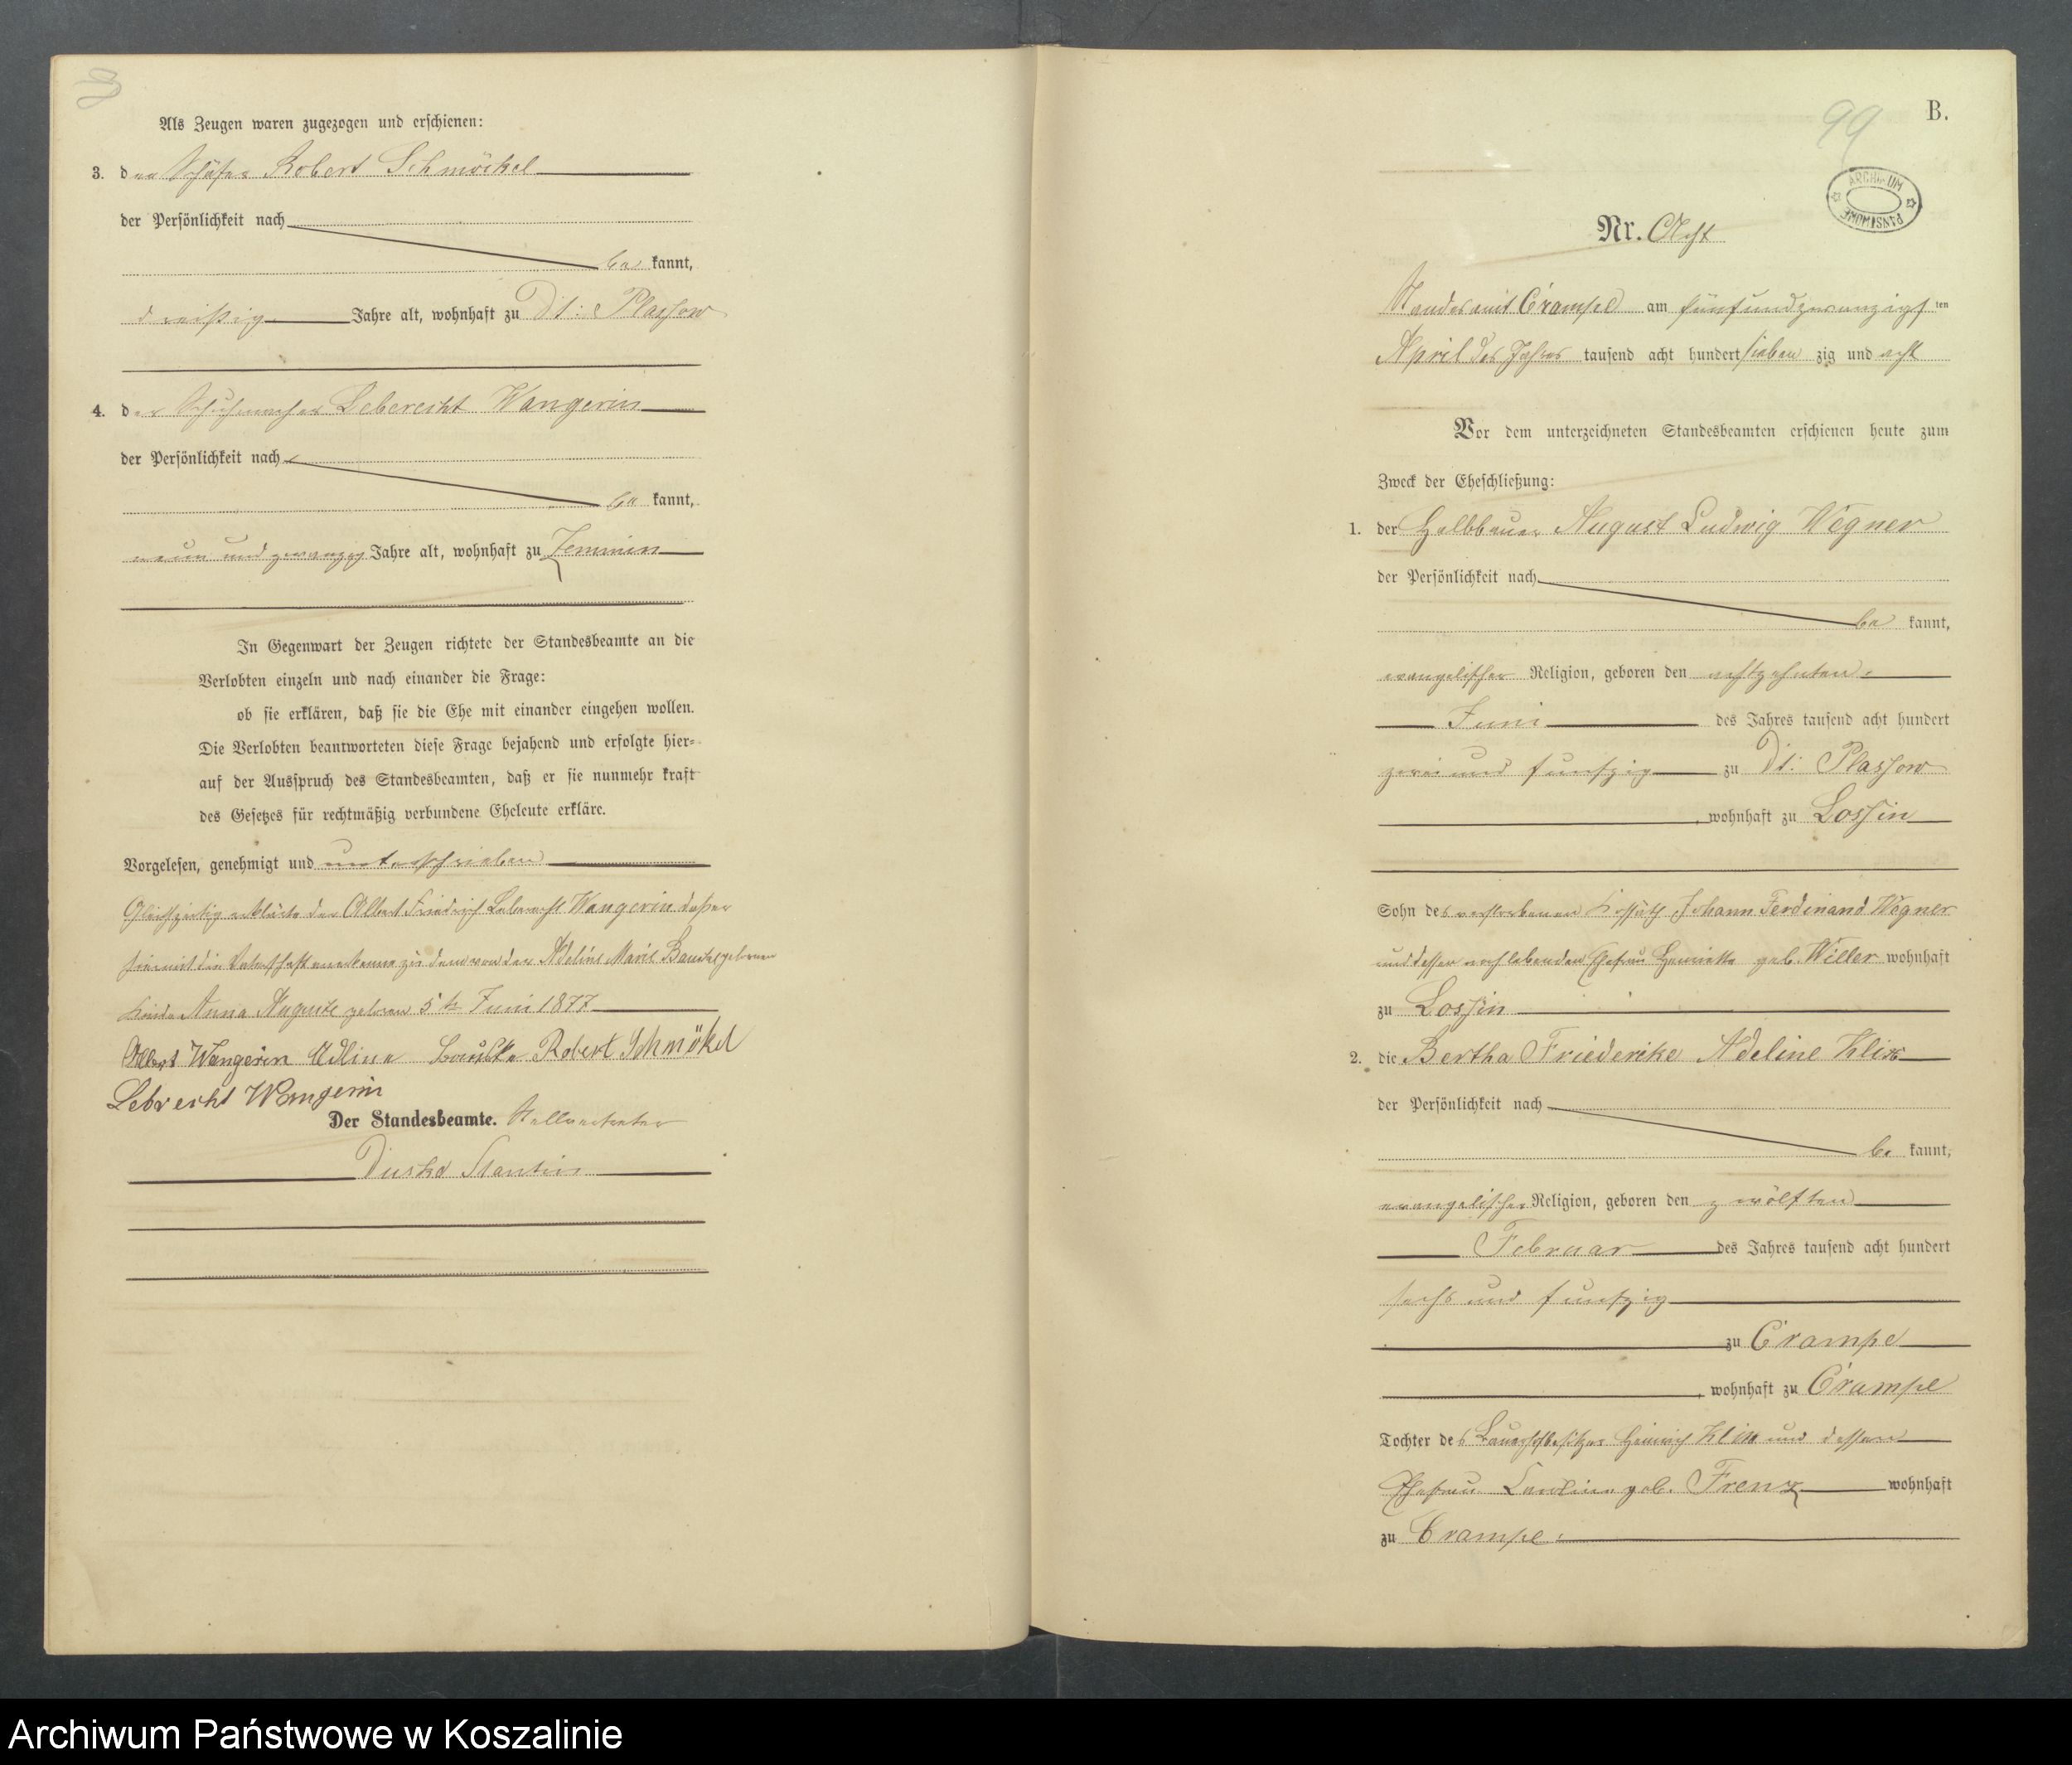 Als Zeugen waren zugezogen und erschienen:
3. der Schäfer Robert Schmöckel
der Persönlichkeit nach
be kannt,
dreißig Jahre alt, wohnhaft zu Dt: Plassow
4. der Schuhmacher Leberecht Wangerin
der Persönlichkeit nach
be kannt,
neun und zwanzig Jahre alt, wohnhaft zu Zemmin
In Gegenwart der Zeugen richtete der Standesbeamte an die
Verlobten einzeln und nach einander die Frage:
ob sie erklären, daß sie die Ehe mit einander eingehen wollen.
Die Verlobten beantworteten diese Frage bejahend und erfolgte hier-
auf der Ausspruch des Standesbeamten, daß er sie nunmehr kraft
des Gesetzes für rechtmäßig verbundene Eheleute erkläre.
Vorgelesen, genehmigt und unterschrieben
Gleichzeitig erklärte der Albert Friedrich Leberecht Wangerin daß er
hiermit die Vaterschaft anerkenne zu dem von der Adeline Marie geborenen
Kinde Anna Auguste geboren 5ten Juni 1877
Albert Wangerin Robert Schmökel
Lebrecht Wangerin
Der Standesbeamte. Stellvertreter
99
B.
ARCHIWUM PAŃSTWOWE
Nr. Acht
Standesamt Crampe am fünfundzwanzigsten
April des Jahres tausend acht hundert sieben zig und acht
Vor dem unterzeichneten Standesbeamten erschienen heute zum
Zweck der Eheschließung:
1. der Halbbauer August Ludwig Wegner
der Persönlichkeit nach
be kannt,
evangelischer Religion, geboren den achtzehnten
Juni des Jahres tausend acht hundert
zwei und funfzig zu Dt: Plassow
, wohnhaft zu Lossin
Sohn des verstorbenen Kossäth Johann Ferdinand Wegner
und dessen noch lebenden Ehefrau Henriette geb. Willer wohnhaft
zu Lossin
2. die Bertha Friederike Adeline Klix
der Persönlichkeit nach
be kannt,
evangelischer Religion, geboren den zwölften
Februar des Jahres tausend acht hundert
sechs und funfzig
zu Crampe
, wohnhaft zu Crampe
Tochter des Bauerhofbesitzer Heinrich Klix und dessen
Ehefrau Caroline geb. Frenz wohnhaft
zu Crampe
Archiwum Państwowe w Koszalinie